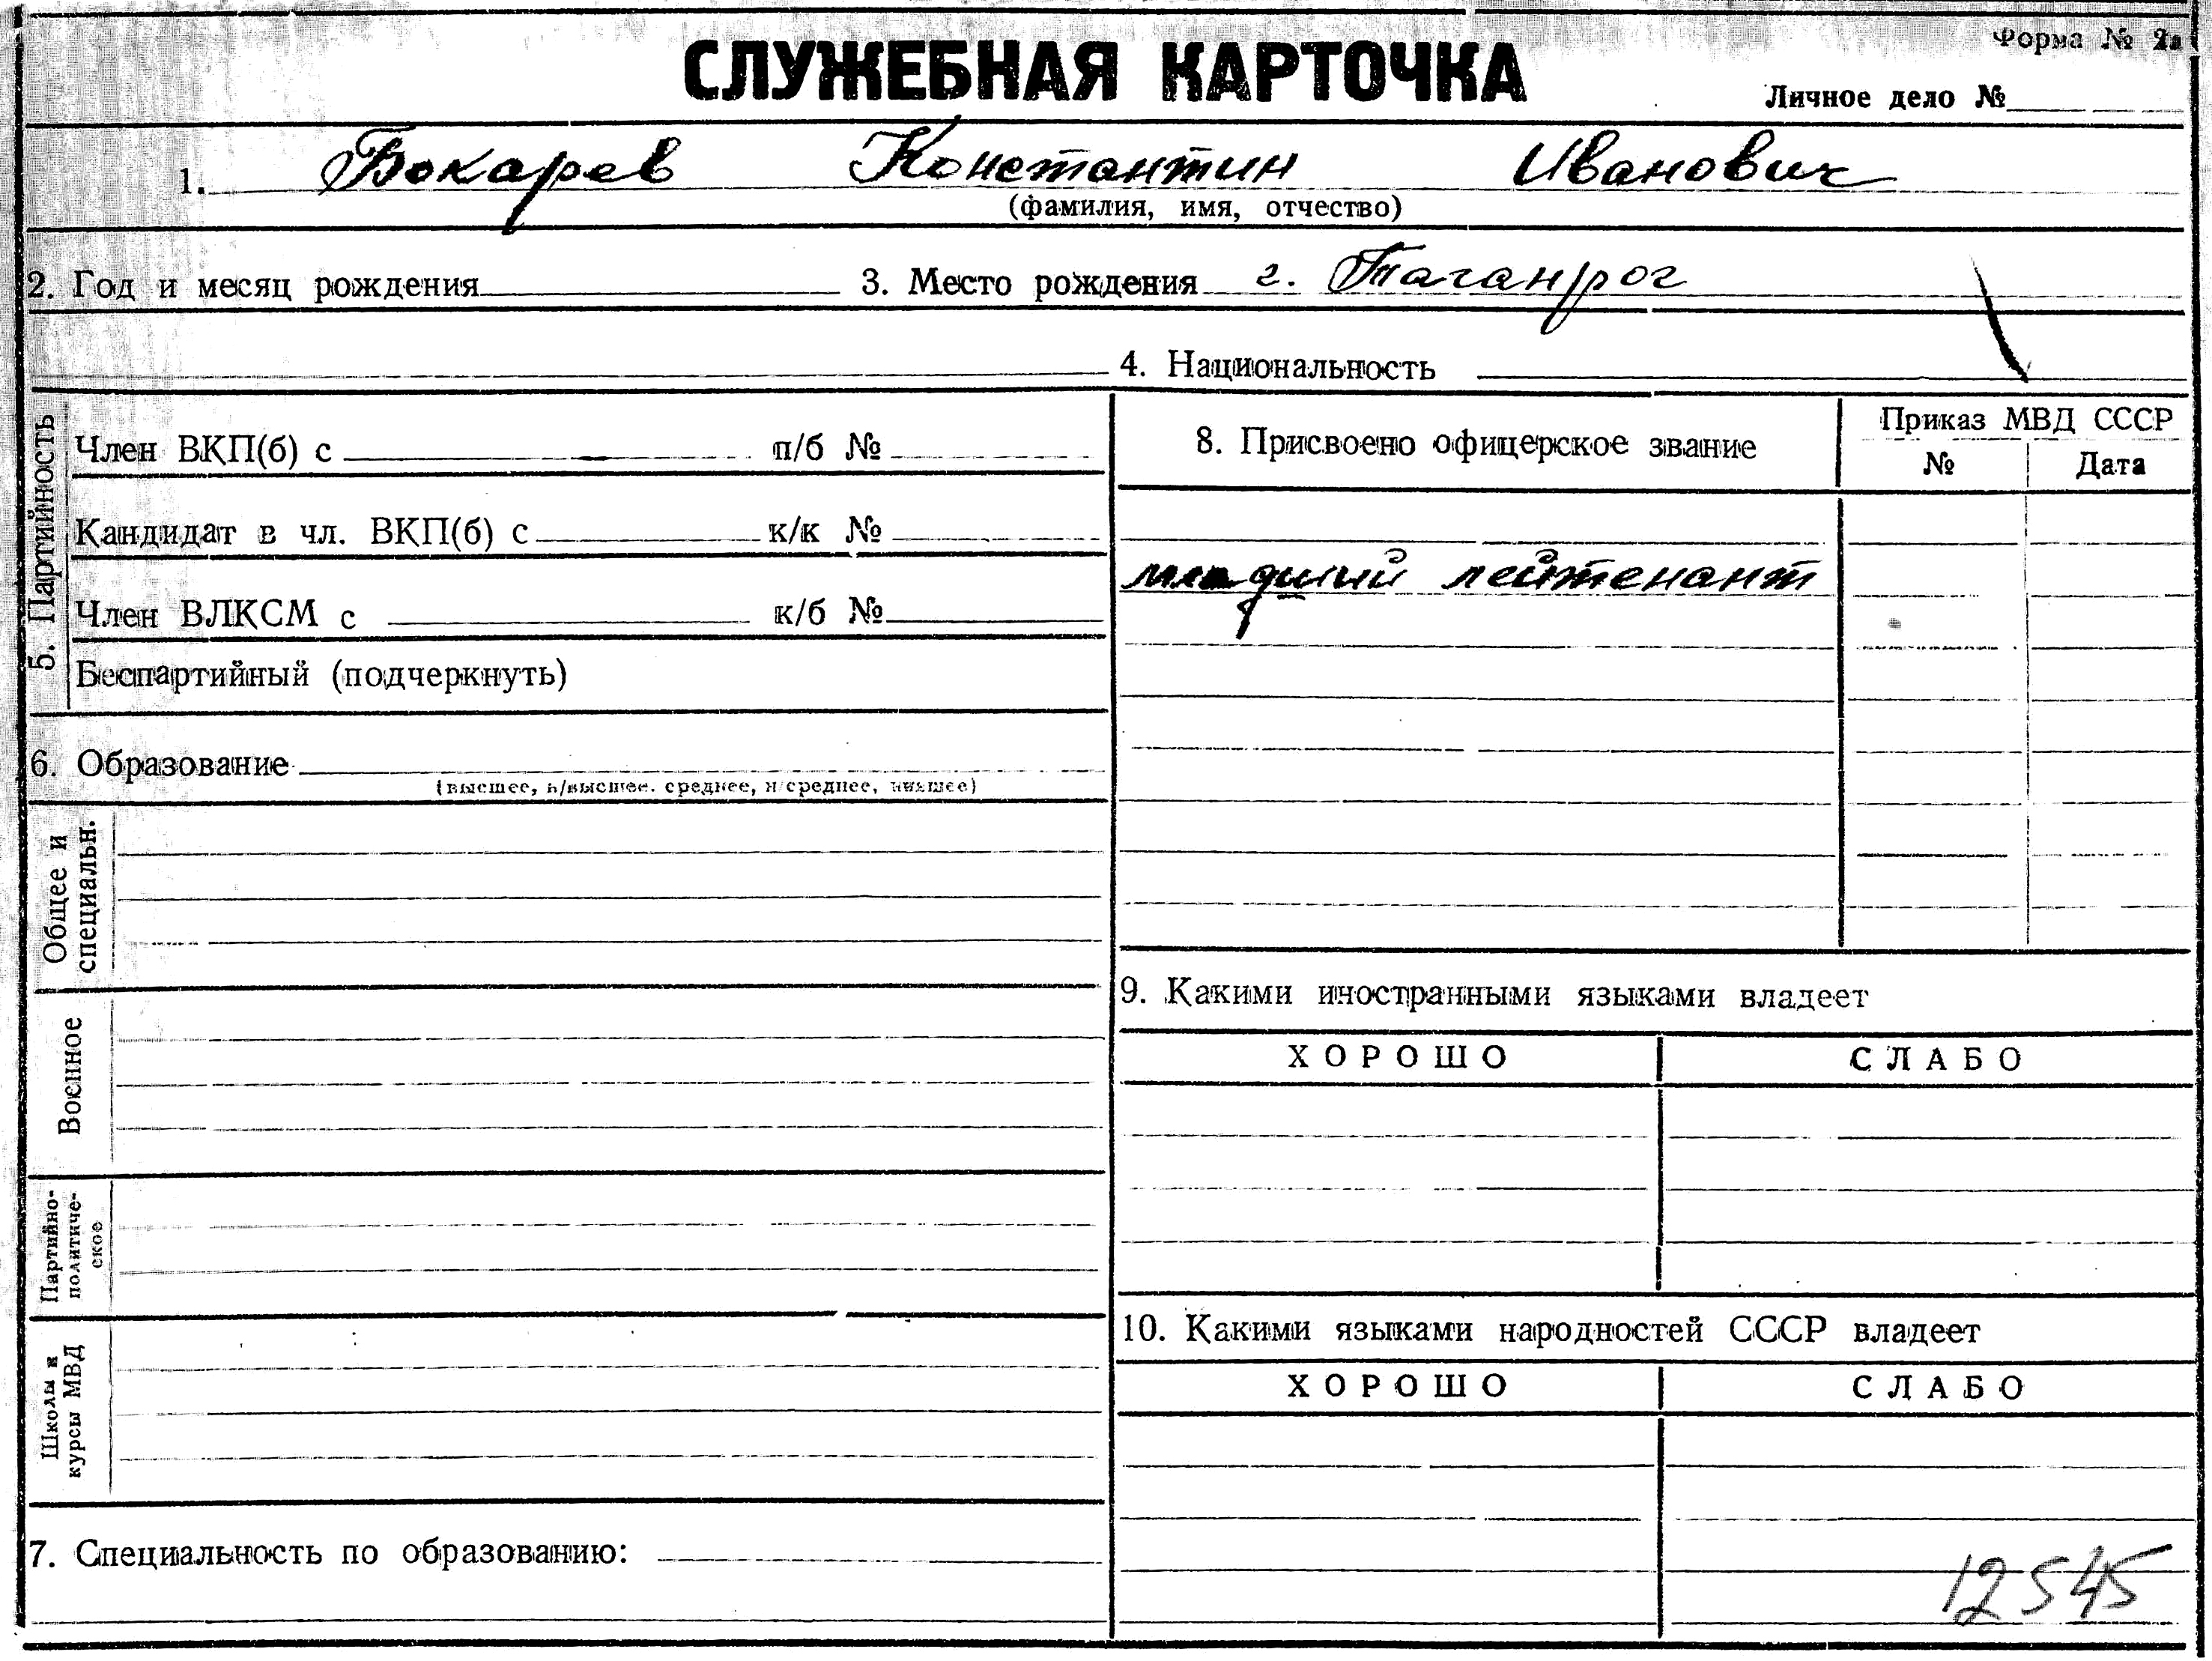 Форма № 2а
СЛУЖЕБНАЯ КАРТОЧКА
Личное дело №
1. Бокарев Константин Иванович
(фамилия, имя, отчество)
2. Год и месяц рождения 3. Место рождения г. Таганрог
4. Национальность
5. Партийность
Член ВКП(б) с п/б №
Кандидат в чл. ВКП(б) с к/к №
Член ВЛКСМ с к/б №
Беспартийный (подчеркнуть)
6. Образование
(высшее, н/высшее, среднее, н/среднее, низшее)
Общее и
специальн.
Военное
Партийно-
политиче-
ское
Школы и
курсы МВД
7. Специальность по образованию:
8. Присвоено офицерское звание
Приказ МВД СССР
№ Дата
младший лейтенант
9. Какими иностранными языками владеет
ХОРОШО СЛАБО
10. Какими языками народностей СССР владеет
ХОРОШО СЛАБО
12545